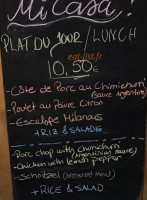 Mi Casa!
PLAT DU JOUR / LUNCH
eat-list.fr
10.50€
-Côte de Porc au Chimichurri
(Sauce Argentine)
-Poulet au Poivre Citron
-Escalope Milanaise
+ RIZ & SALADE
-Pork chop with chimichurri
(Argentinian sauce)
-Chicken with lemon pepper
-Schnitzel (breaded meat)
+ RICE & SALAD